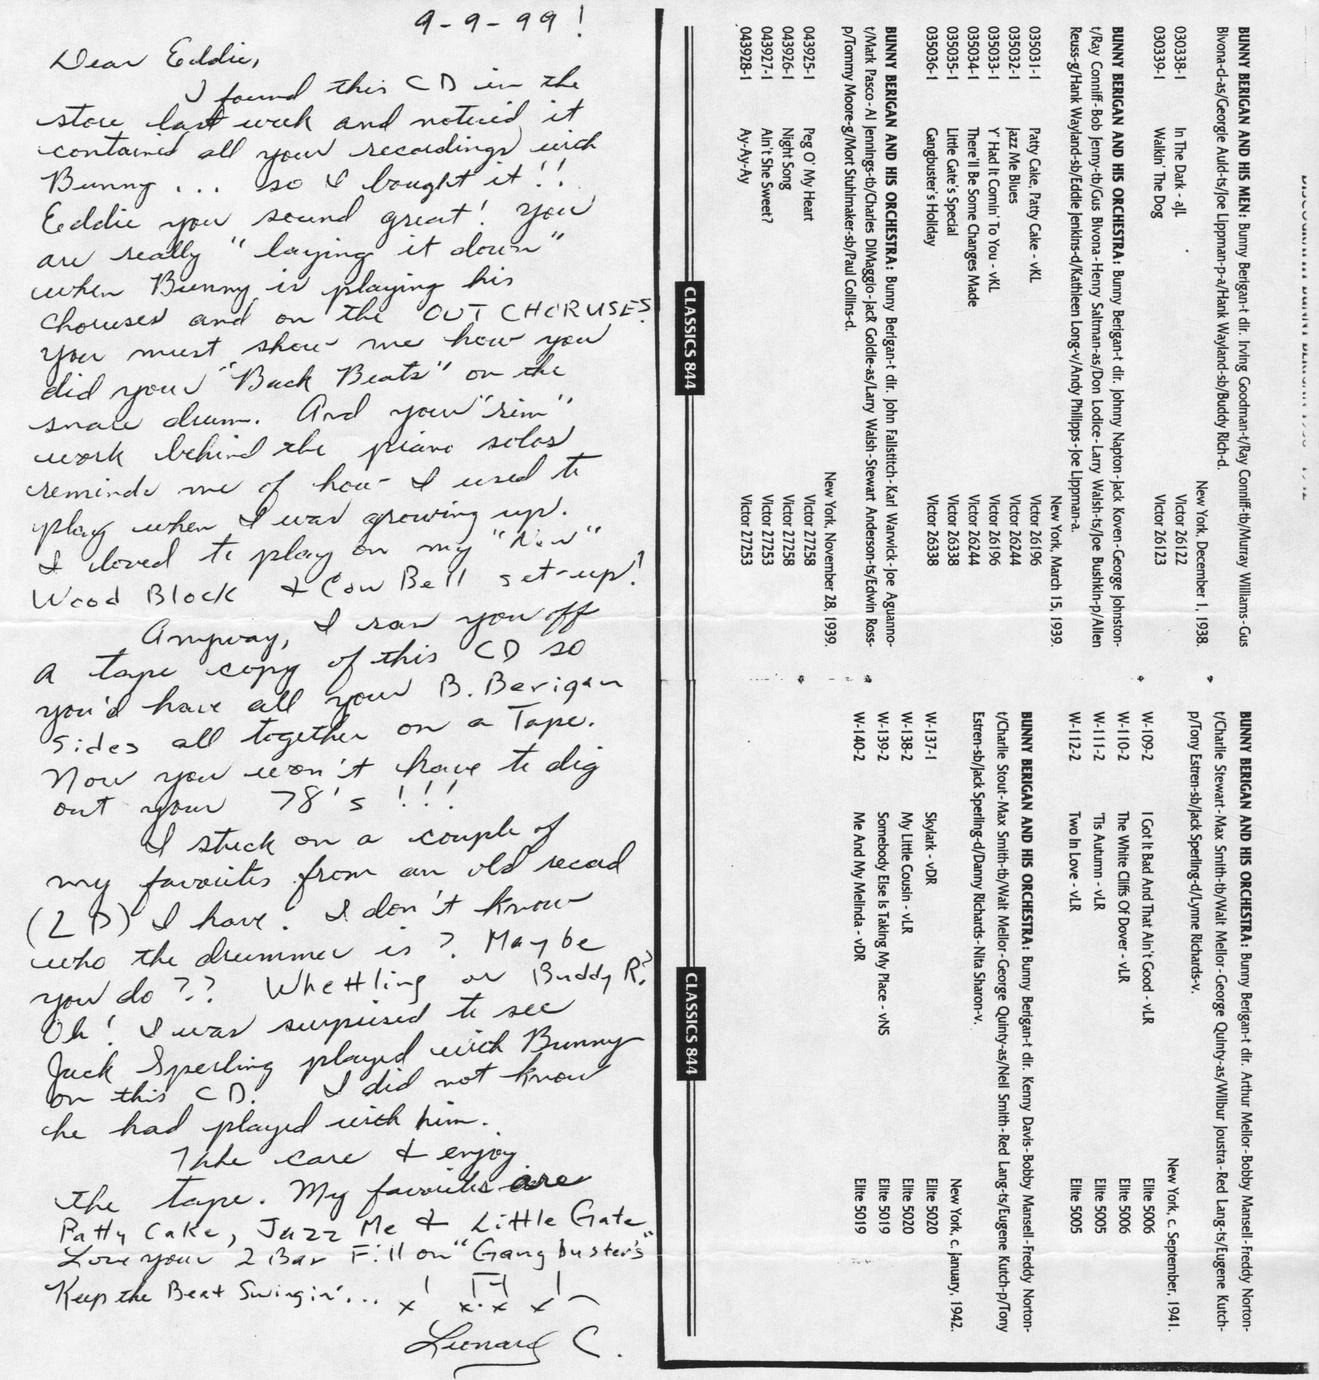 9-9-99!
Dear Eddie,
I found this CD in the
store last week and noticed it
contained all your recordings with
Bunny... so I bought it!!
Eddie you sound great! You
are really "laying it down"
when Bunny is playing his
choruses and on the OUT CHORUSES
You must show me how you
did your "Back Beats" on the
snare drum. And your "rim"
work behind the piano solos
reminds me of how I used to
play when I was growing up.
I loved to play on my "New"
Wood Block & Cow Bell set-up!
Anyway, I ran you off
A tape copy of this CD so
you'd have all your B. Berigan
sides all together on a Tape.
Now you won't have to dig
out your 78's !!!
I stuck on a couple of
my favorites from an old record
(LP) I have. I don't know
who the drummer is? Maybe
you do?? Whettling or Buddy R?
Oh! I was surprised to see
Jack Sperling played with Bunny
on this CD. I did not know
he had played with him.
Take care & enjoy
the tape. My favorites are
Patty Cake, Jazz Me & Little Gate
Love your 2 Bar Fill on "Gangbuster's"
Keep the Beat Swingin'...
Leonard C.
BUNNY BERIGAN AND HIS MEN: Bunny Berigan-t dir. Irving Goodman-t/Ray Conniff-tb/Murray Williams-Gus
Bivona-cl-as/Georgie Auld-ts/Joe Lippman-p-a/Hank Wayland-sb/Buddy Rich-d.
New York, December 1, 1938.
030338-1 In The Dark - aJL Victor 26122
030339-1 Walkin' The Dog Victor 26123
BUNNY BERIGAN AND HIS ORCHESTRA: Bunny Berigan-t dir. Johnny Napton-Jack Koven-George Johnston-
t/Ray Conniff-Bob Jenny-tb/Gus Bivona-Henry Saltman-as/Don Lodice-Larry Walsh-ts/Joe Bushkin-p/Allen
Reuss-g/Hank Wayland-sb/Eddie Jenkins-d/Kathleen Long-v/Andy Philipps-Joe Lippman-a.
New York, March 15, 1939.
035031-1 Patty Cake, Patty Cake - vKL Victor 26196
035032-1 Jazz Me Blues Victor 26244
035033-1 Y' Had It Comin' To You - vKL Victor 26196
035034-1 There'll Be Some Changes Made Victor 26244
035035-1 Little Gate's Special Victor 26338
035036-1 Gangbuster's Holiday Victor 26338
BUNNY BERIGAN AND HIS ORCHESTRA: Bunny Berigan-t dir. John Fallstitch-Karl Warwick-Joe Aguanno-
t/Mark Pasco-Al Jennings-tb/Charles DiMaggio-Jack Goldie-as/Larry Walsh-Stewart Anderson-ts/Edwin Ross-
p/Tommy Moore-g/Mort Stuhlmaker-sb/Paul Collins-d.
New York, November 28, 1939.
043925-1 Peg O' My Heart Victor 27258
043926-1 Night Song Victor 27258
043927-1 Ain't She Sweet? Victor 27253
043928-1 Ay-Ay-Ay Victor 27253
CLASSICS 844
BUNNY BERIGAN AND HIS ORCHESTRA: Bunny Berigan-t dir. Arthur Mellor-Bobby Mansell-Freddy Norton-
t/Charlie Stewart-Max Smith-tb/Walt Mellor-George Quinty-as/Wilbur Joustra-Red Lang-ts/Eugene Kutch-
p/Tony Estren-sb/Jack Sperling-d/Lynne Richards-v.
New York, c. September, 1941.
W-109-2 I Got It Bad And That Ain't Good - vLR Elite 5006
W-110-2 The White Cliffs Of Dover - vLR Elite 5006
W-111-2 'Tis Autumn - vLR Elite 5005
W-112-2 Two In Love - vLR Elite 5005
BUNNY BERIGAN AND HIS ORCHESTRA: Bunny Berigan-t dir. Kenny Davis-Bobby Mansell-Freddy Norton-
t/Charlie Stout-Max Smith-tb/Walt Mellor-George Quinty-as/Neil Smith-Red Lang-ts/Eugene Kutch-p/Tony
Estren-sb/Jack Sperling-d/Danny Richards-Nita Sharon-v.
New York, c. January, 1942.
W-137-1 Skylark - vDR Elite 5020
W-138-2 My Little Cousin - vLR Elite 5020
W-139-2 Somebody Else Is Taking My Place - vNS Elite 5019
W-140-2 Me And My Melinda - vDR Elite 5019
CLASSICS 844